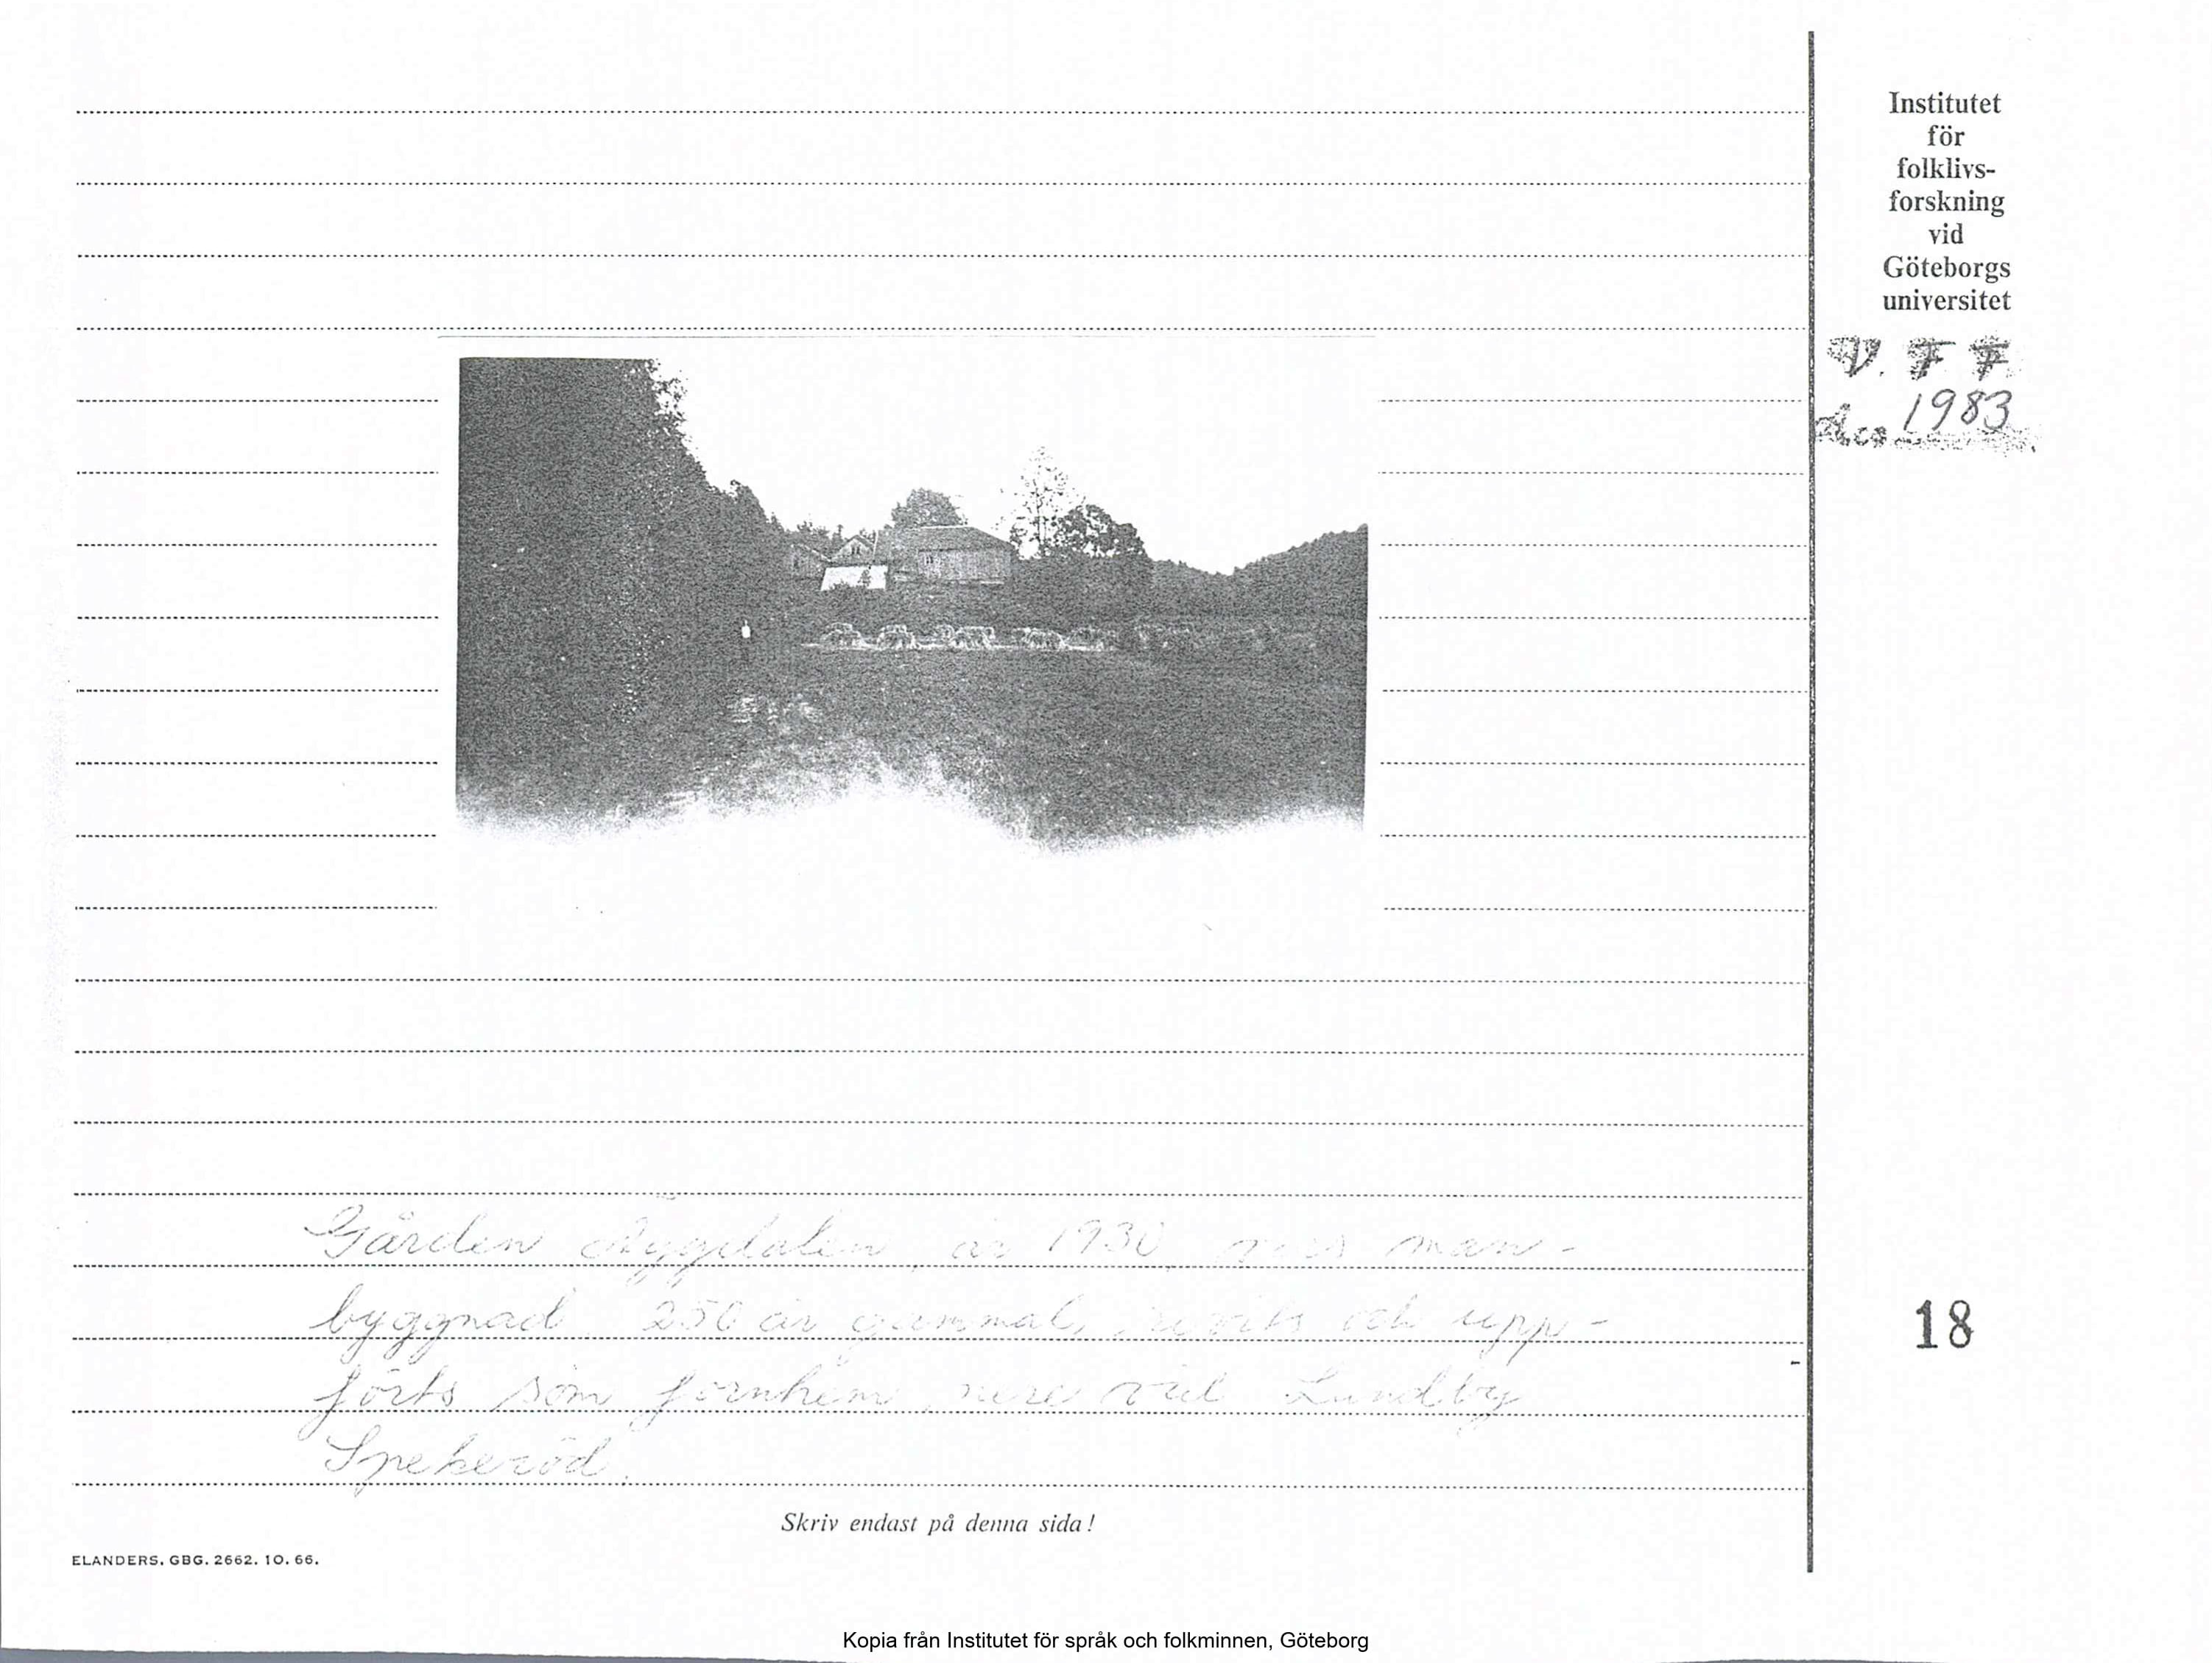 Institutet
för
folklivs-
forskning
vid
Göteborgs
universitet
V. F F
1983
Gården år 1930, man-
byggnad 250 år gammal, och upp-
förts som fornhem, nere vid Lundby
Spekeröd.
18
Skriv endast på denna sida!
ELANDERS. GBG. 2662. 10. 66.
Kopia från Institutet för språk och folkminnen, Göteborg